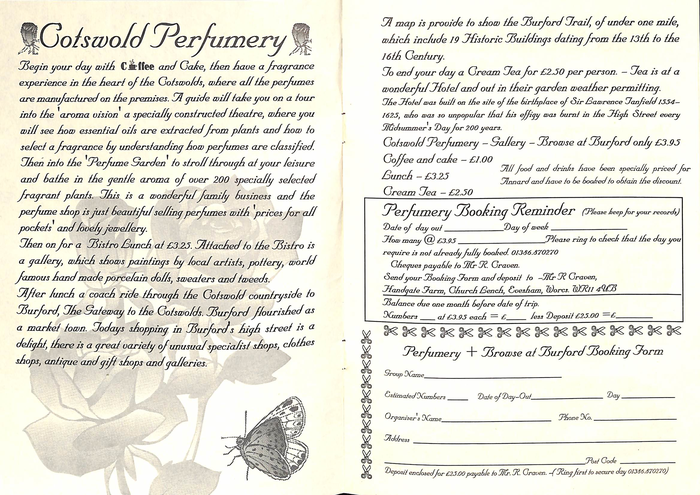 Cotswold Perfumery
Begin your day with Coffee and Cake, then have a fragrance
experience in the heart of the Cotswolds, where all the perfumes
are manufactured on the premises. A guide will take you on a tour
into the 'aroma vision' a specially constructed theatre, where you
will see how essential oils are extracted from plants and how to
select a fragrance by understanding how perfumes are classified.
Then into the 'Perfume Garden' to stroll through at your leisure
and bathe in the gentle aroma of over 200 specially selected
fragrant plants. This is a wonderful family business and the
perfume shop is just beautiful selling perfumes with 'prices for all
pockets' and lovely jewellery.
Then on for a Bistro Lunch at £3.25. Attached to the Bistro is
a gallery, which shows paintings by local artists, pottery, world
famous hand made porcelain dolls, sweaters and tweeds.
After lunch a coach ride through the Cotswold countryside to
Burford, The Gateway to the Cotswolds. Burford flourished as
a market town. Todays shopping in Burford's high street is a
delight, there is a great variety of unusual specialist shops, clothes
shops, antique and gift shops and galleries.
A map is provide to show the Burford Trail, of under one mile,
which include 19 Historic Buildings dating from the 13th to the
16th Century.
To end your day a Cream Tea for £2.50 per person. – Tea is at a
wonderful Hotel and out in their garden weather permitting.
The Hotel was built on the site of the birthplace of Sir Lawrence Tanfield 1554–
1625, who was so unpopular that his effigy was burnt in the High Street every
Midsummer's Day for 200 years.
Cotswold Perfumery – Gallery – Browse at Burford only £3.95
Coffee and cake – £1.00
Lunch – £3.25
Cream Tea – £2.50
All food and drinks have been specially priced for
Annard and have to be booked to obtain the discount.
Perfumery Booking Reminder (Please keep for your records)
Date of day out Day of week
How many @ £3.95 Please ring to check that the day you
require is not already fully booked 01386.870270
Cheques payable to Mr R. Craven.
Send your Booking Form and deposit to –Mr R Craven,
Handgate Farm, Church Lench, Evesham, Worcs. WR11 4UB
Balance due one month before date of trip.
Numbers at £3.95 each = £ less Deposit £25.00 =£
Perfumery + Browse at Burford Booking Form
Group Name
Estimated Numbers Date of Day-Out Day
Organiser's Name Phone No.
Address
Post Code
Deposit enclosed for £25.00 payable to Mr. R. Craven. –( Ring first to secure day 01386.870270)